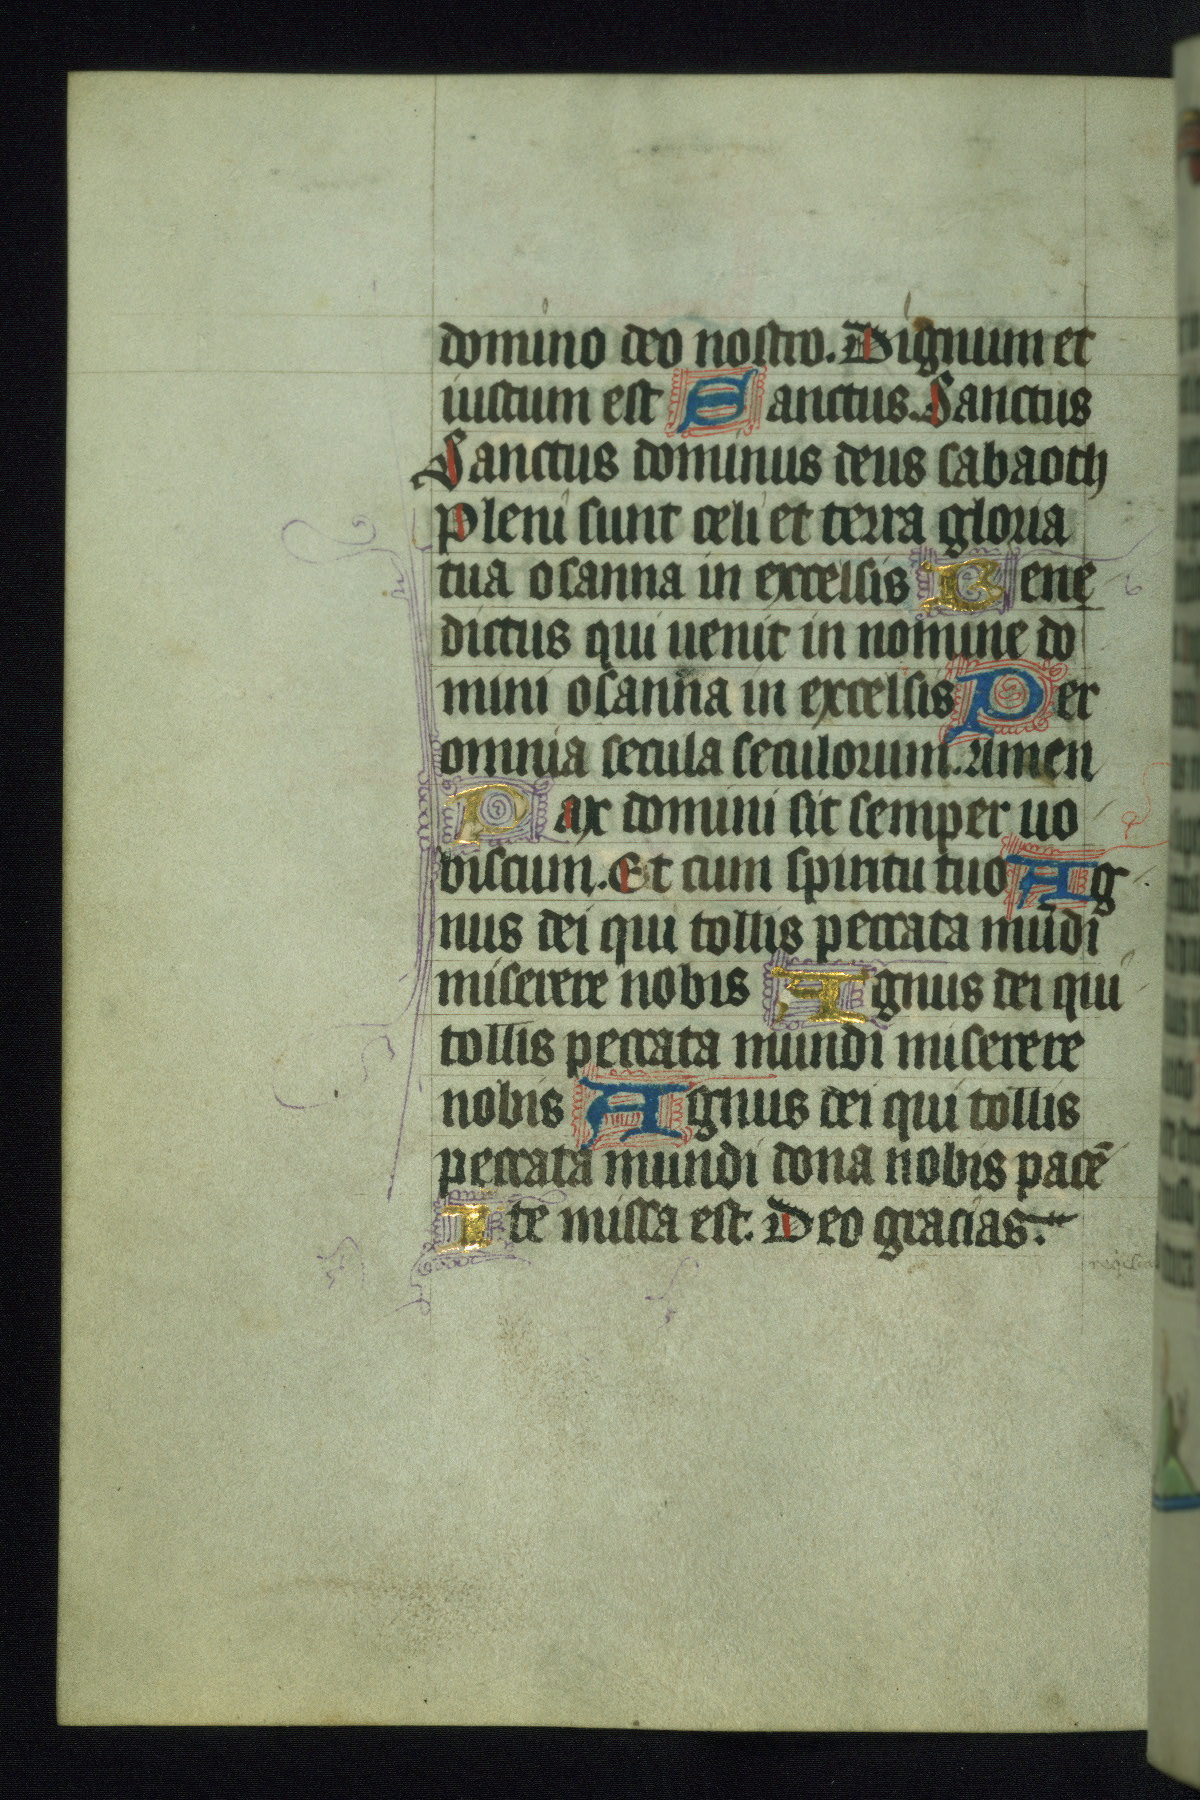 domino deo nostro. Dignum et
iustum est Sanctus. Sanctus
Sanctus dominus deus sabaoth
Pleni sunt celi et terra gloria
tua osanna in excelsis Bene
dictus qui uenit in nomine do
mini osanna in excelsis Per
omnia secula seculorum. Amen
Pax domini sit semper uo
biscum. Et cum spiritu tuo Ag
nus dei qui tollis peccata mūdi
miserere nobis Agnus dei qui
tollis peccata mundi miserere
nobis Agnus dei qui tollis
peccata mundi dona nobis pacē
Ite missa est. Deo gracias.